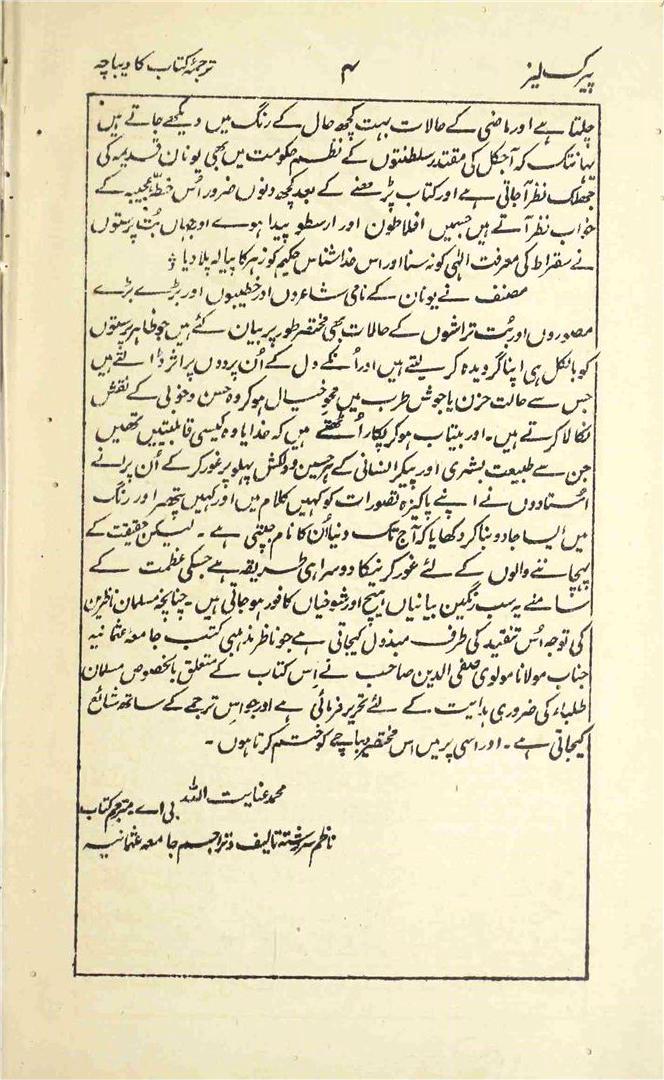 پیرکلیز ۴ ترجمۂ کتاب کا دیباچہ
چلتا ہے اور ماضی کے حالات بہت کچھ حال کے رنگ میں دیکھے جاتے ہیں
یہانتک کہ آجکل کی مقتدر سلطنتوں کے نظم حکومت میں بھی یونان قدیمہ کی
جھلک نظر آجاتی ہے اور کتاب پڑھنے کے بعد کچھ دنوں ضرور اُس خطۂ عجیبہ کے
خواب نظر آتے ہیں جسمیں افلاطون اور ارسطو پیدا ہوے اور جہاں بُت پرستوں
نے سقراط کی معرفت الٰہی کو نہ سنا اور اس خدا شناس حکیم کو زہر کا پیالہ پلا دیا
مصنف نے یونان کے نامی شاعروں اور خطیبوں اور بڑے بڑے
مصوروں اور بُت تراشوں کے حالات بھی مختصر طور پر بیان کئے ہیں جو ظاہر پرستوں
کو بالکل ہی اپنا گرویدہ کر لیتے ہیں اور اُنکے دل کے اُن پردوں پر اثر ڈالتے ہیں
جس سے حالت حزن یا جوش طرب میں محو خیال ہو کر وہ حسن و خوبی کے نقش
نکالا کرتے ہیں۔ اور بیتاب ہو کر پکار اُٹھتے ہیں کہ خدایا وہ کیسی قابلیتیں تھیں
جن سے طبیعت بشری اور پیکر انسانی کے ہر حسین و دلکش پہلو پر غور کر کے اُن پرانے
اُستادوں نے اپنے پاکیزہ تصورات کو کہیں کلام میں اور کہیں پتھر اور رنگ
میں ایسا جادو بنا کر دکھایا کہ آج تک دنیا اُن کا نام جپتی ہے۔ لیکن حقیقت کے
پہچاننے والوں کے لئے غور کرنیکا دوسرا ہی طریقہ ہے جسکی عظمت کے
سامنے یہ سب رنگین بیانیاں ہیچ اور شوخیاں کافور ہو جاتی ہیں۔ چنانچہ مسلمان ناظرین
کی توجہ اُس تنقید کی طرف مبذول کیجاتی ہے جو ناظر مذہبی کتب جامعہ عثمانیہ
جناب مولانا مولوی صفی الدین صاحب نے اِس کتاب کے متعلق بالخصوص مسلمان
طلباء کی ضروری ہدایت کے لئے تحریر فرمائی ہے اور جو اس ترجمے کے ساتھ شائع
کیجاتی ہے۔ اور اسی پر میں اس مختصر دیباچے کو ختم کرتا ہوں۔
محمد عنایت اللہ بی اے مترجم کتاب
ناظم سررشتہ تالیف و تراجم جامعہ عثمانیہ